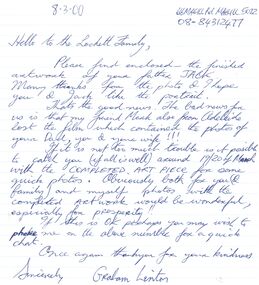 8-3.00
08-84312477
Hello to the Lockett Family,
Please find enclosed the finished
artwork of your father JACK.
Many thanks for the photo & I hope
you like the portrait.
That's the good news. The bad news for
us is that my friend Mark also from Adelaide
lost the film which contained the photos of
your Dad, you & your wife!!!
If it is not too much trouble is it possible
to call you (if all is well) around 19/20 of March
with the COMPLETED ART PIECE for some
quick photos. Obviously both for you &
family and myself photos with the
completed artwork would be wonderful,
especially for prosperity.
All this is OK perhaps you may wish to
phone me on the above number for a quick
chat.
Once again thankyou for your kindness.
Sincerely, Graham Linton